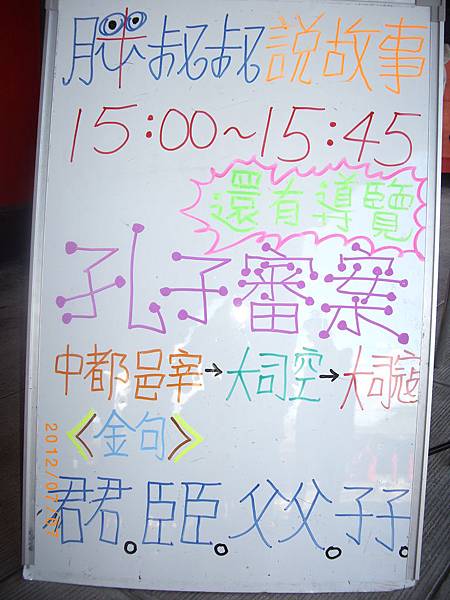 胖叔叔說故事
15:00~15:45
還有導覽
孔子審案
中都邑宰→大司空→大司寇
<金句>
君君。臣臣。父父。子子。
2012/07/07